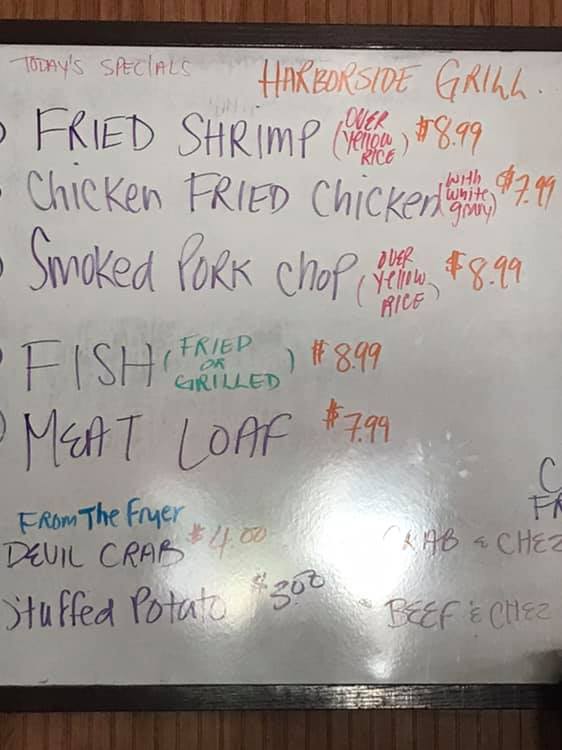 TODAY'S SPECIALS
HARBORSIDE GRILL.
FRIED SHRIMP (OVER Yellow RICE) $8.99
Chicken FRIED Chicken (with white gravy) $7.99
Smoked PORK chop (OVER Yellow RICE) $8.99
FISH (FRIED OR GRILLED) $8.99
MEAT LOAF $7.99
FROM The Fryer
DEVIL CRAB $4.00
Stuffed Potato $3.00
C
FR
CRAB & CHEZ
BEEF & CHEZ